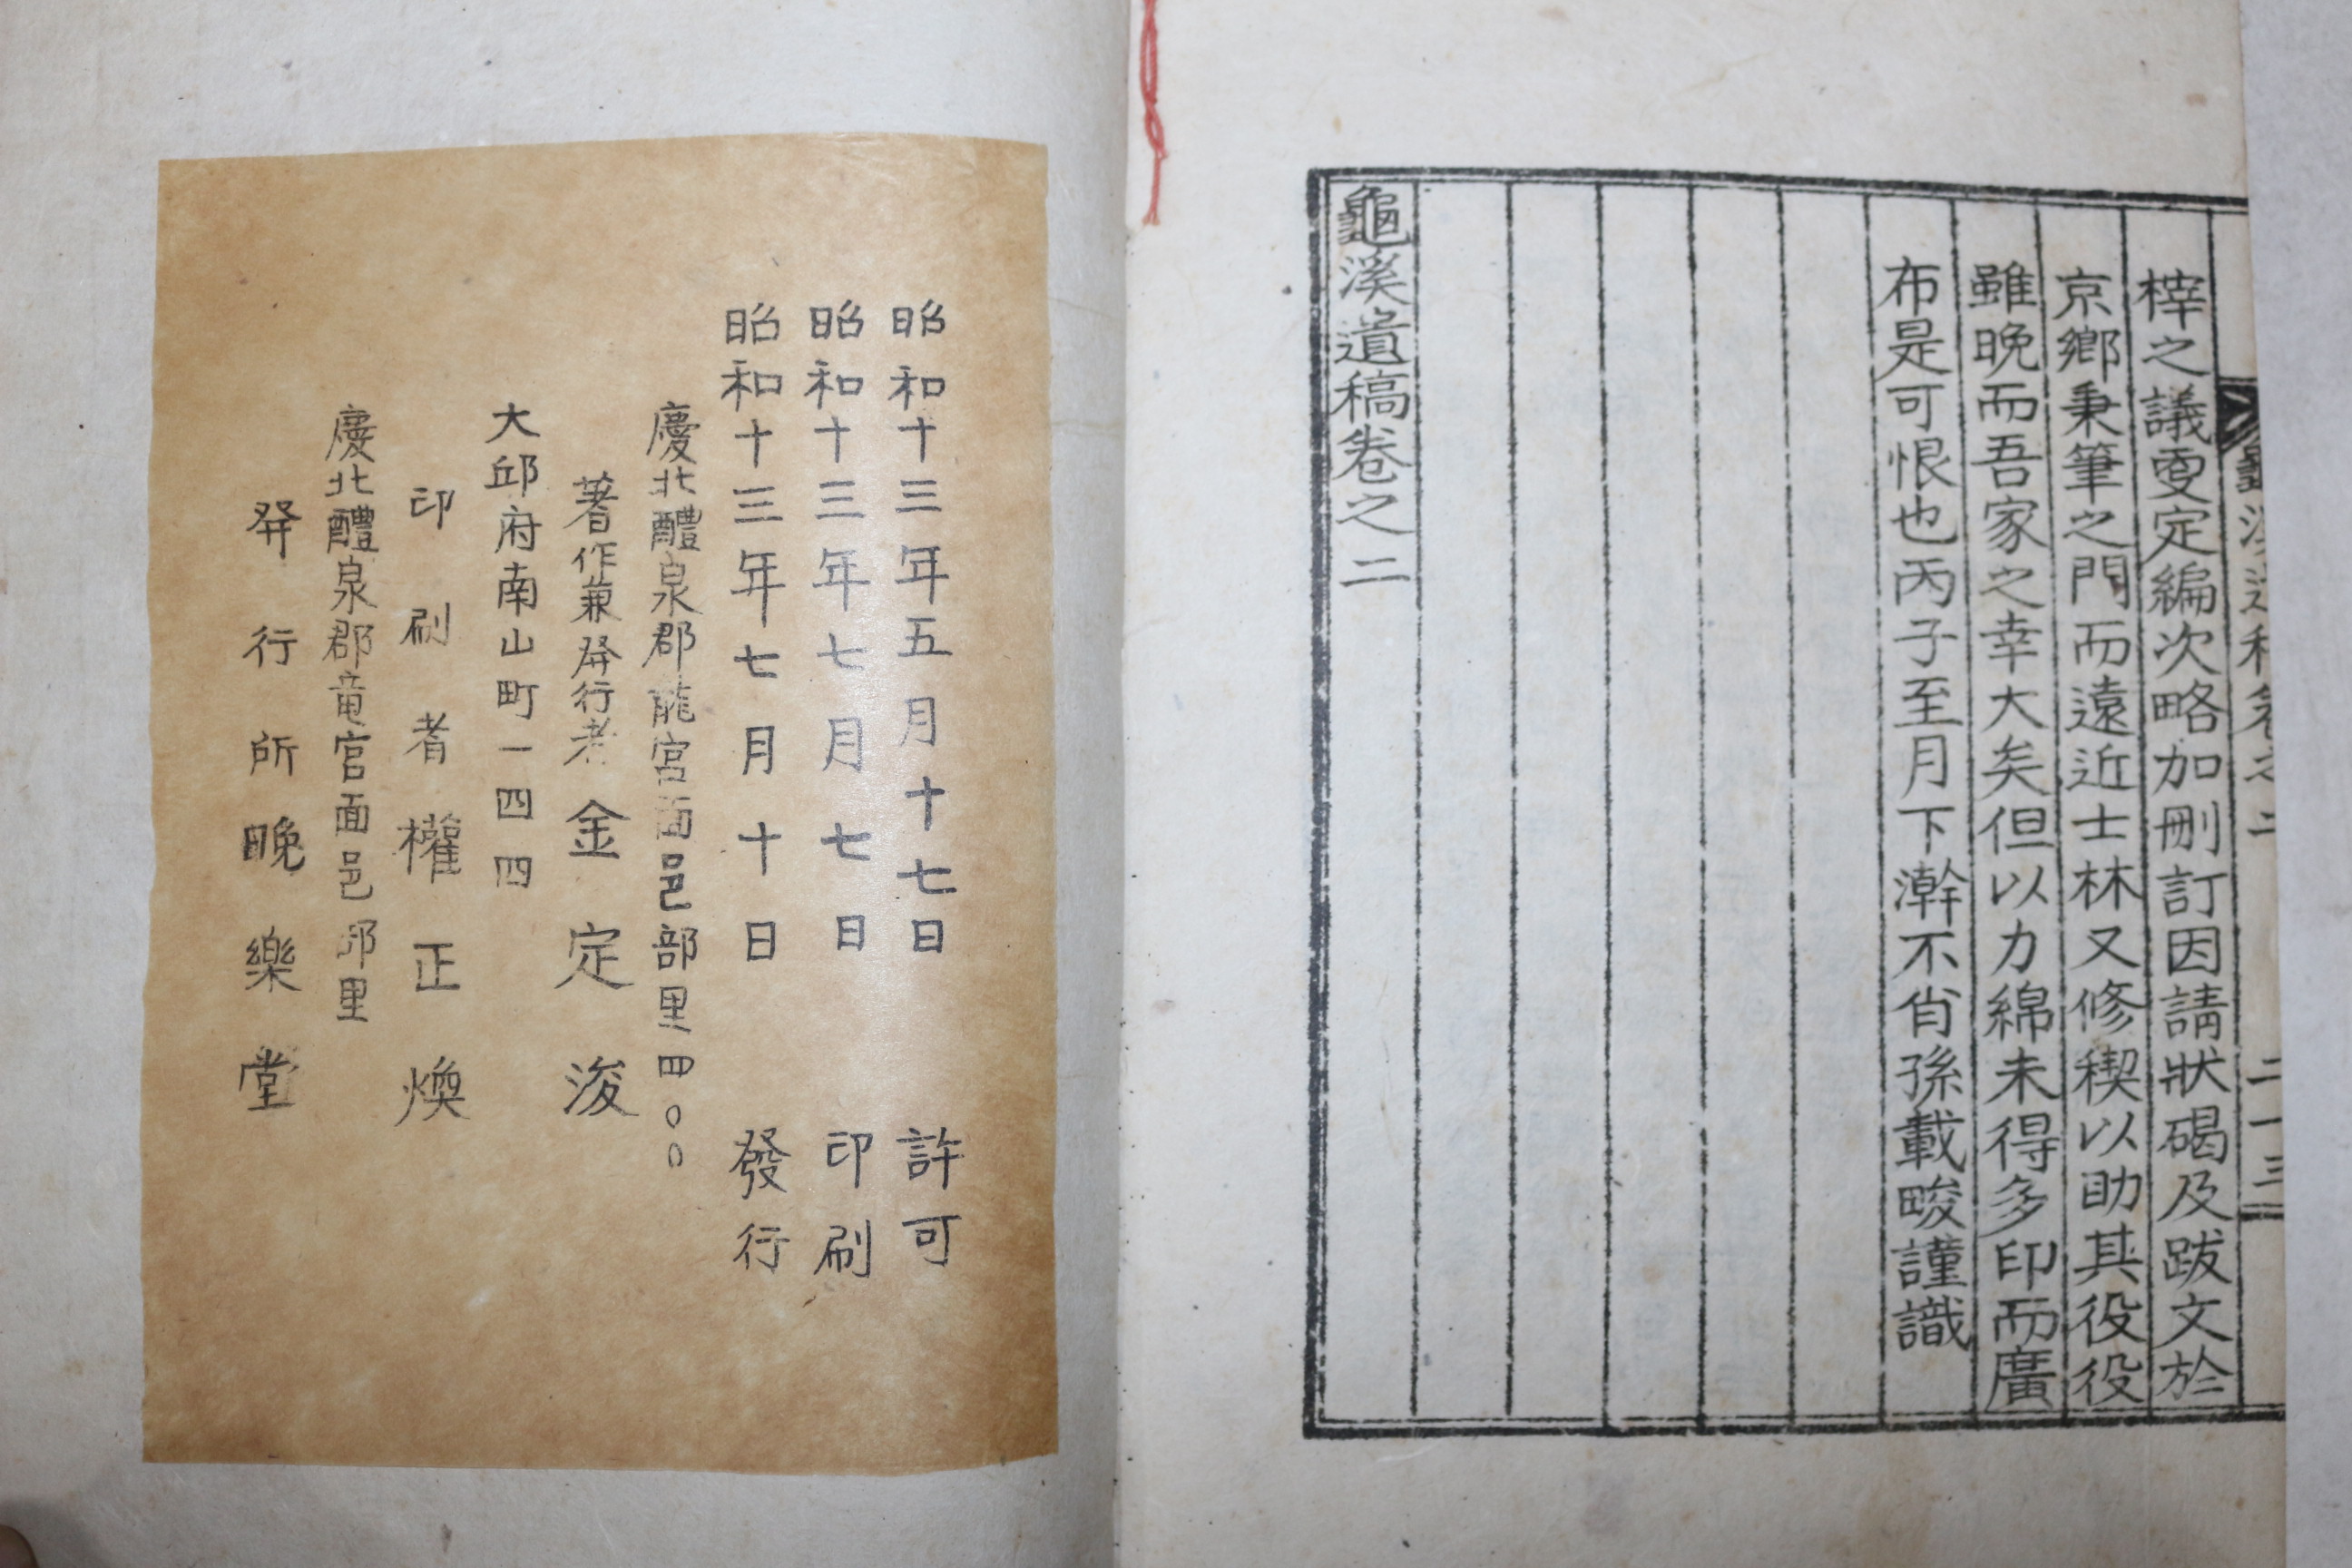 梓之議更定編次略加刪訂因請狀碣及跋文於
京鄉秉筆之門而遠近士林又修稧以助其役役
雖晚而吾家之幸大矣但以力綿未得多印而廣
布是可恨也丙子至月下澣不肖孫載畯謹識
龜溪遺稿卷之二
昭和十三年五月十七日 許可
昭和十三年七月七日 印刷
昭和十三年七月十日 發行
慶北醴泉郡龍宮面邑部里四〇〇
著作兼發行者 金定浚
大邱府南山町一四四
印刷者 權正煥
慶北醴泉郡竜宮面邑部里
發行所 晚樂堂